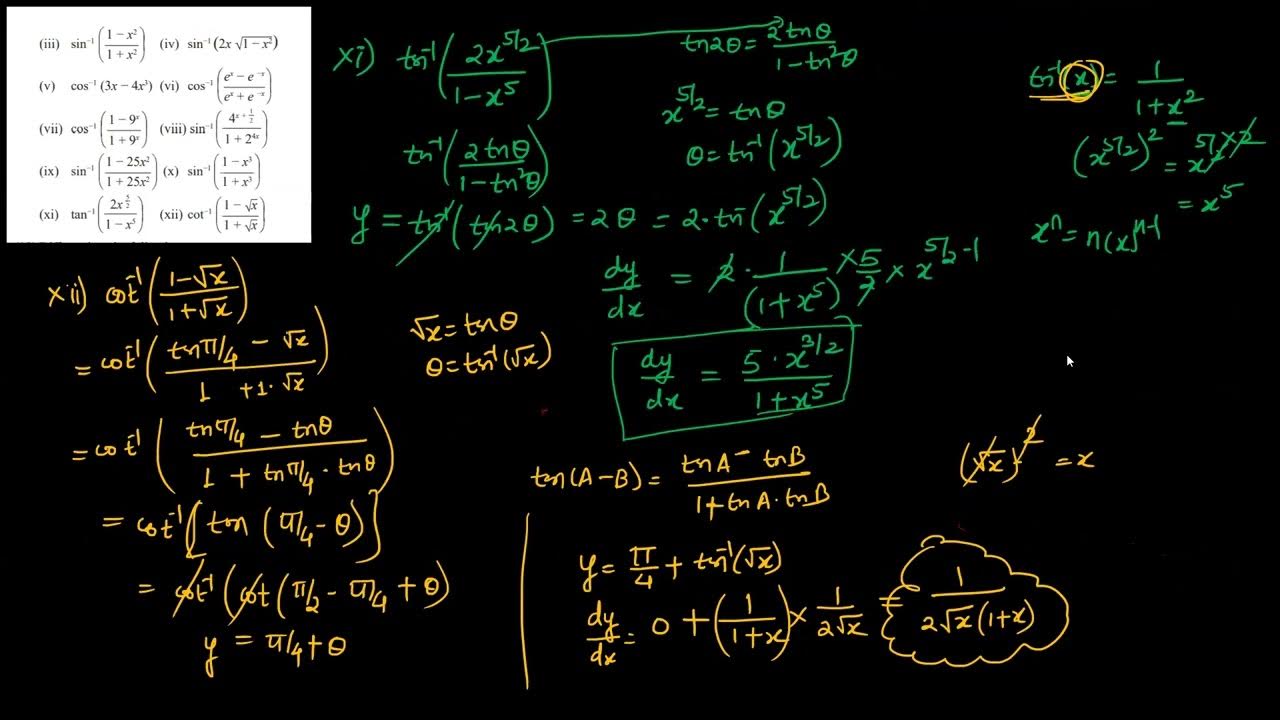 (iii) sin⁻¹((1 − x²)/(1 + x²)) (iv) sin⁻¹(2x √(1−x²))
(v) cos⁻¹(3x − 4x³) (vi) cos⁻¹((eˣ − e⁻ˣ)/(eˣ + e⁻ˣ))
(vii) cos⁻¹((1 − 9ˣ)/(1 + 9ˣ)) (viii) sin⁻¹(4^(x + 1/2)/(1 + 2^(4x)))
(ix) sin⁻¹((1 − 25x²)/(1 + 25x²)) (x) sin⁻¹((1 − x³)/(1 + x³))
(xi) tan⁻¹(2x^(5/2)/(1 − x⁵)) (xii) cot⁻¹((1 − √x)/(1 + √x))
xi) tn⁻¹(2x^(5/2)/(1 − x⁵))
tn2θ = 2tnθ/(1 − tn²θ)
x^(5/2) = tnθ
tn⁻¹(2tnθ/(1 − tn²θ))
θ = tn⁻¹(x^(5/2))
y = tn⁻¹(tn2θ) = 2θ = 2·tn⁻¹(x^(5/2))
dy/dx = 2 · 1/(1 + x⁵) × 5/2 × x^(5/2 − 1)
dy/dx = 5·x^(3/2)/(1 + x⁵)
tn⁻¹(x) = 1/(1 + x²)
(x^(5/2))² = x^(5/2 × 2)
= x⁵
xⁿ = n(x)ⁿ⁻¹
xii) cot⁻¹((1 − √x)/(1 + √x))
= cot⁻¹((tnπ/4 − √x)/(1 + 1·√x))
√x = tnθ
θ = tn⁻¹(√x)
= cot⁻¹((tnπ/4 − tnθ)/(1 + tnπ/4 · tnθ))
= cot⁻¹[tan(π/4 − θ)]
= cot⁻¹(cot(π/2 − π/4 + θ)
y = π/4 + θ
tan(A − B) = (tnA − tnB)/(1 + tnA·tnB)
(√x)² = x
y = π/4 + tn⁻¹(√x)
dy/dx = 0 + (1/(1 + x)) × 1/(2√x) = 1/(2√x(1 + x))